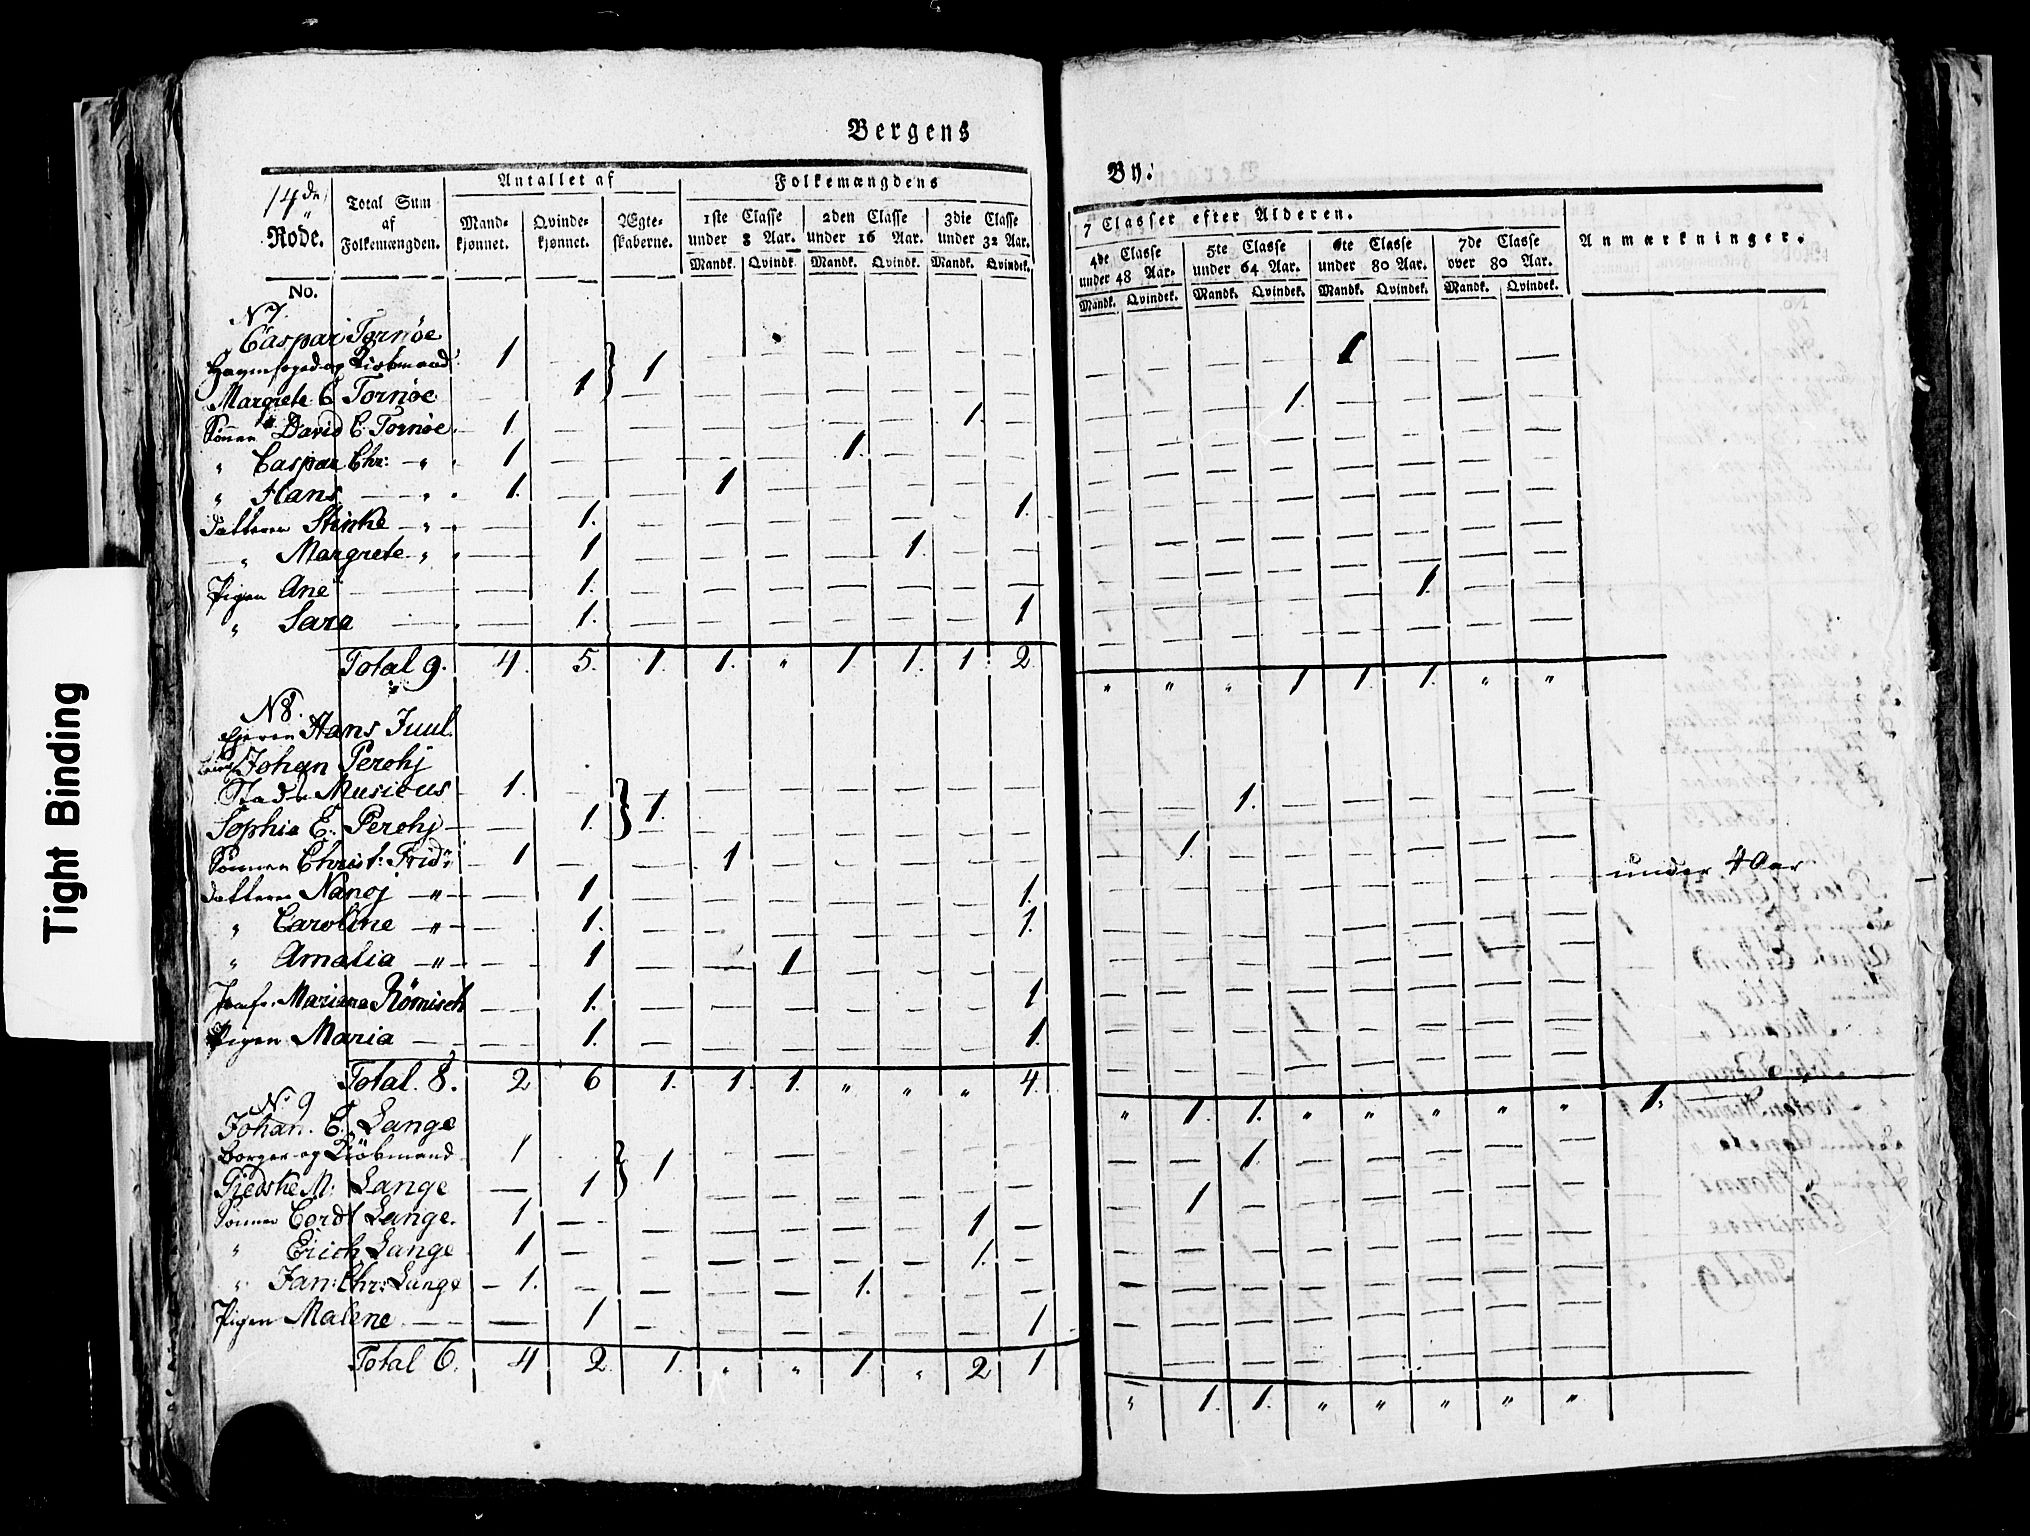 Bergens
14de Rode.
Total Sum af Folkemængden.
Antallet af
Mandkjønnet. Qvindekjønnet. Ægteskaberne.
Folkemængdens
1ste Classe under 8 Aar. 2den Classe under 16 Aar. 3die Classe under 32 Aar.
Mandk. Qvindk. Mandk. Qvindk. Mandk. Qvindek.
No.
N 7.
Caspar Tornøe
Havnefoged og Kiøbmand 1 — 1
Margrete C Tornøe — 1
Sønnen David C. Tornøe 1 — — — — — — 1.
" Caspar Chr: — " 1 — — — — 1.
" Hans — " 1. — — 1
Datteren Stinke — " — 1. — — — — — — 1.
— " Margrete " — 1 — — — — 1. — —
Pigen Ane — 1. — — — — — — —
" Sara — 1. — — — — — — 1
Total 9. 4. 5. 1. 1. " 1. 1. 1. 2.
N 8.
Ejeren Hans Juul.
Johan Perohj
Stads Musicus 1. — 1.
Sophia E. Perohj — 1.
Sønnen Christ: Frid: " 1 — — 1
Datteren Nancj — " — — 1 — — — — — — 1.
" Caroline — " — — 1. — — — — — — 1.
" Amalia — " — — 1 — — 1 — — — —
Jomfr. Mariane Römisch — 1. — — — — — — 1
Pigen Maria — — 1. — — — — — — 1.
Total 8. 2 6 1. 1. 1. " " " 4.
N. 9
Johan. C. Lange
Borger og Kiöbmand 1 — 1
Giedske M: Lange — 1
Sønnen Cordt Lange. 1 — — — — — — 1 —
" Erich Lange 1 — — — — — — 1. —
" Jan: Chr: Lange — 1. — — — — 1. — —
Pigen Malene — — 1 — — — — — — 1
Total 6. 4 2 1. " " 1. " 2 1
By:
7 Classer efter Alderen.
4de Classe under 48 Aar. 5te Classe under 64 Aar. 6te Classe under 80 Aar. 7de Classe over 80 Aar.
Anmærkninger.
Mandk. Qvindek. Mandk. Qvindek. Mandk. Qvindek. Mandk. Qvindek.
1
1.
1.
" " " 1 1 1. " "
1.
1.
under 4 Aar
" 1. 1. " " " " " 1.
1.
1
" 1. 1. " " " " "
Tight Binding